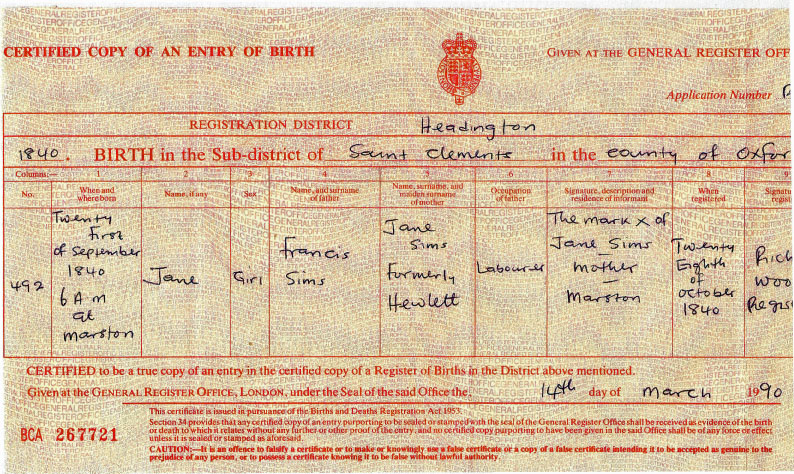 CERTIFIED COPY OF AN ENTRY OF BIRTH
GIVEN AT THE GENERAL REGISTER OFF
Application Number
REGISTRATION DISTRICT Headington
1840. BIRTH in the Sub-district of Saint Clements in the county of Oxfor
Columns:— 1 2 3 4 5 6 7 8 9
No.
When and where born
Name, if any
Sex
Name, and surname of father
Name, surname, and maiden surname of mother
Occupation of father
Signature, description and residence of informant
When registered
Signatu
regist
492
Twenty
First
of September
1840
6 A m
at
marston
Jane
Girl
Francis
Sims
Jane
Sims
Formerly
Hewlett
Labourer
The mark x of
Jane Sims
mother
Marston
Twenty
Eighth
of
October
1840
Rich
Woo
Regis
CERTIFIED to be a true copy of an entry in the certified copy of a Register of Births in the District above mentioned.
Given at the GENERAL REGISTER OFFICE, LONDON, under the Seal of the said Office the, 14th day of march 1990
This certificate is issued in pursuance of the Births and Deaths Registration Act 1953.
Section 34 provides that any certified copy of an entry purporting to be sealed or stamped with the seal of the General Register Office shall be received as evidence of the birth
or death to which it relates without any further or other proof of the entry, and no certified copy purporting to have been given in the said Office shall be of any force or effect
unless it is sealed or stamped as aforesaid.
BCA 267721
CAUTION:—It is an offence to falsify a certificate or to make or knowingly use a false certificate or a copy of a false certificate intending it to be accepted as genuine to the
prejudice of any person, or to possess a certificate knowing it to be false without lawful authority.